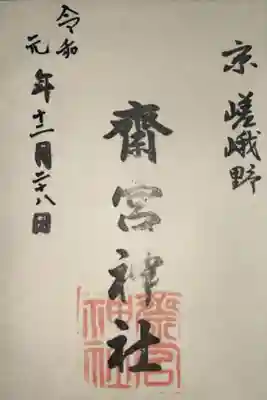 京 嵯峨野
齋宮神社
令和元年十二月二十八日
齋宮神社